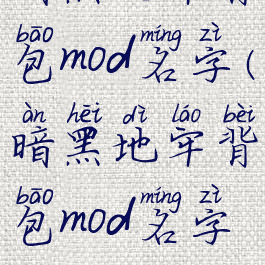 bāo míng zì
包mod名字(
àn hēi dì láo bèi
暗黑地牢背
bāo míng zì
包mod名字